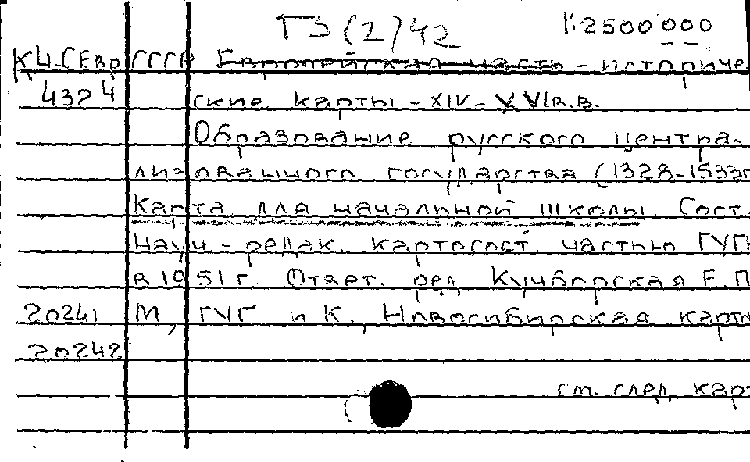 ТЗ (2) 42 1:2500000
КЦ.СЕвр СССР Европейская часть - историче
4324 ские карты - XIV - XVIв.в.
Образование русского центра-
лизованного государства (1328-1533г
Карта для начальной школы. Сост.
Науч - редак. картосост. частью ГУГ
в 1951г. Ответ. ред. Кучборская Е.П
20241 М, ГУГ и К., Новосибирская карт
20242
см. след. карт